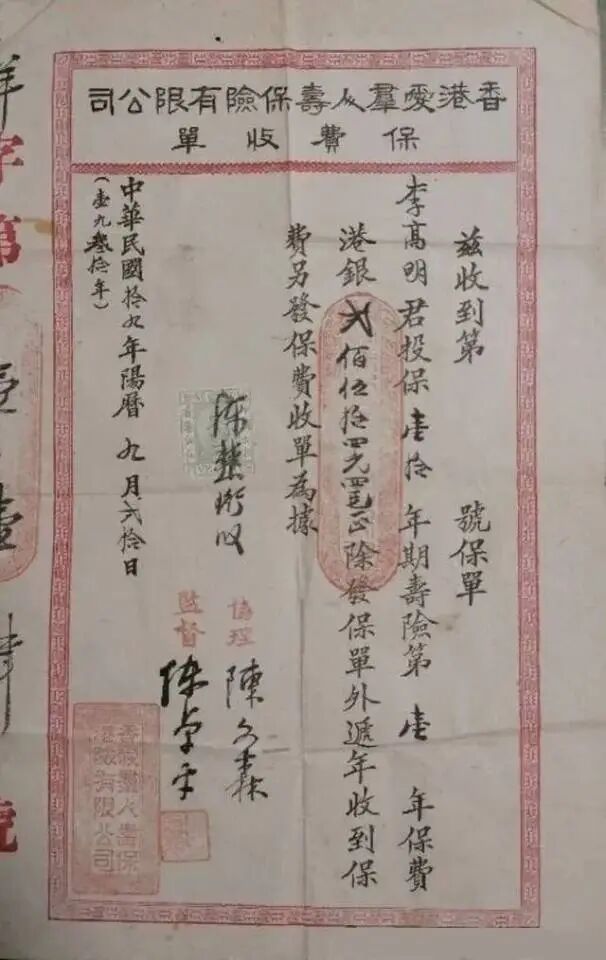 香港愛羣人壽保險有限公司
保費收單
茲收到第　號保單
李高明君投保壹拾年期壽險第壹年保費
港銀弍佰伍拾四元四毫正除發保單外遞年收到保
費另發保費收單為據
協理 陳文森
監督
中華民國拾九年陽曆九月弍拾日
(壹九叁拾年)
香港愛羣人壽保險有限公司
字第
壹
號